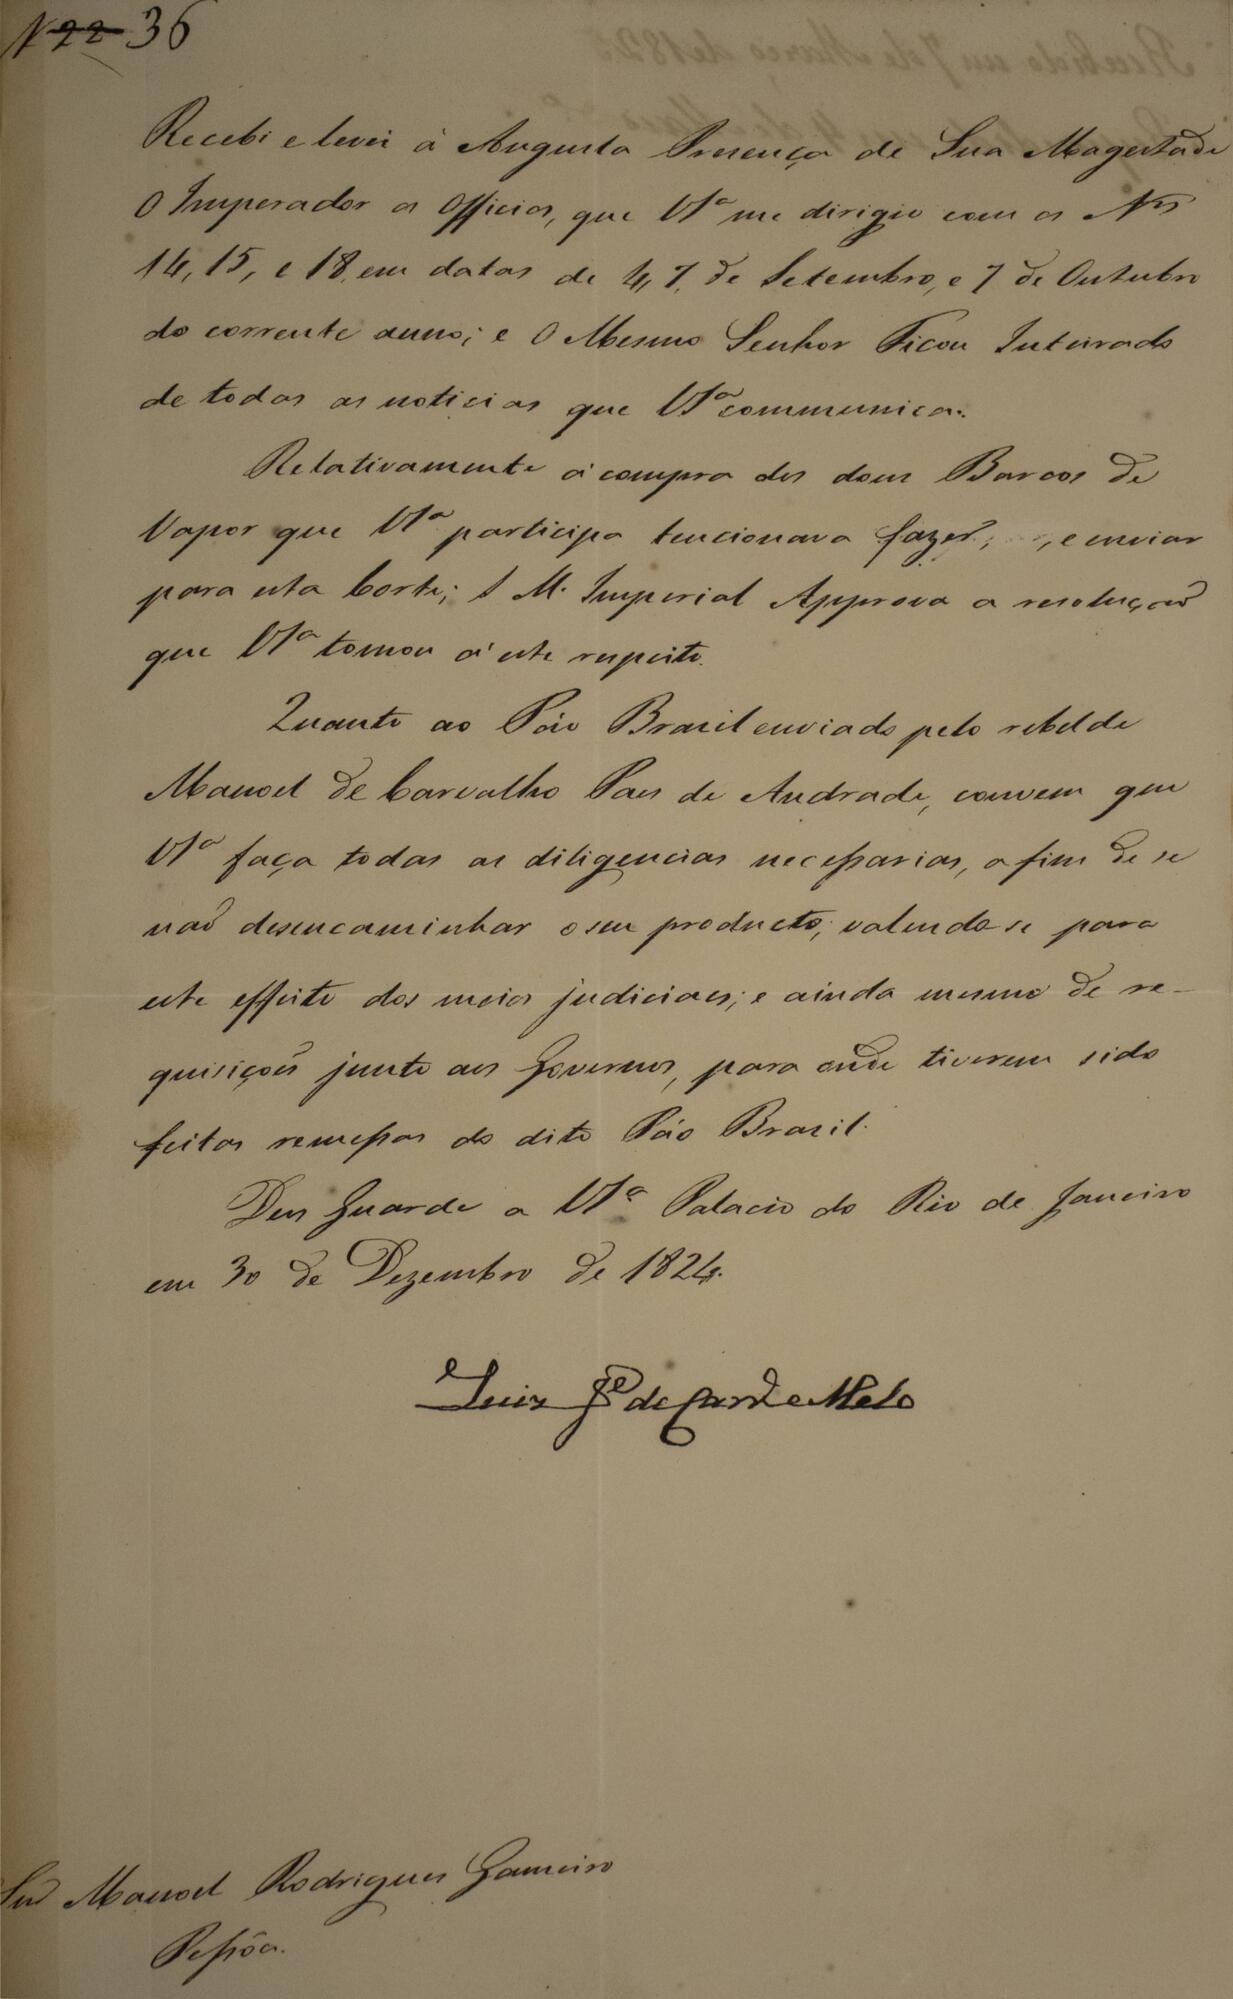 N 22 36
Recebi e levei á Augusta Presença de Sua Magestade
O Imperador os Officios, que VSª me dirigio com os Nos
14, 15, e 18, em datas de 4, 7, de Setembro, e 7 de Outubro
do corrente anno; e O Mesmo Senhor Ficou Inteirado
de todas as noticias que VSª communica.
Relativamente á compra dos dous Barcos de
Vapor que VSª participa tencionava fazer, e enviar
para esta Corte; S M. Imperial Approva a resolução
que VSª tomou á este respeito.
Quanto ao Páo Brazil enviado pelo rebelde
Manoel de Carvalho Paes de Andrade, convem que
VSª faça todas as diligencias necessarias, a fim de se
naõ desencaminhar o seu producto, valendo-se para
este effeito dos meios judiciaes; e ainda mesmo de re-
quisições junto aos Governos, para onde tiverem sido
feitas remessas do dito Páo Brazil.
Deos Guarde a VSª Palacio do Rio de Janeiro
em 30 de Dezembro de 1824.
Luiz Je de Carvº e Mello
Snr Manoel Rodrigues Gameiro
Pessôa.